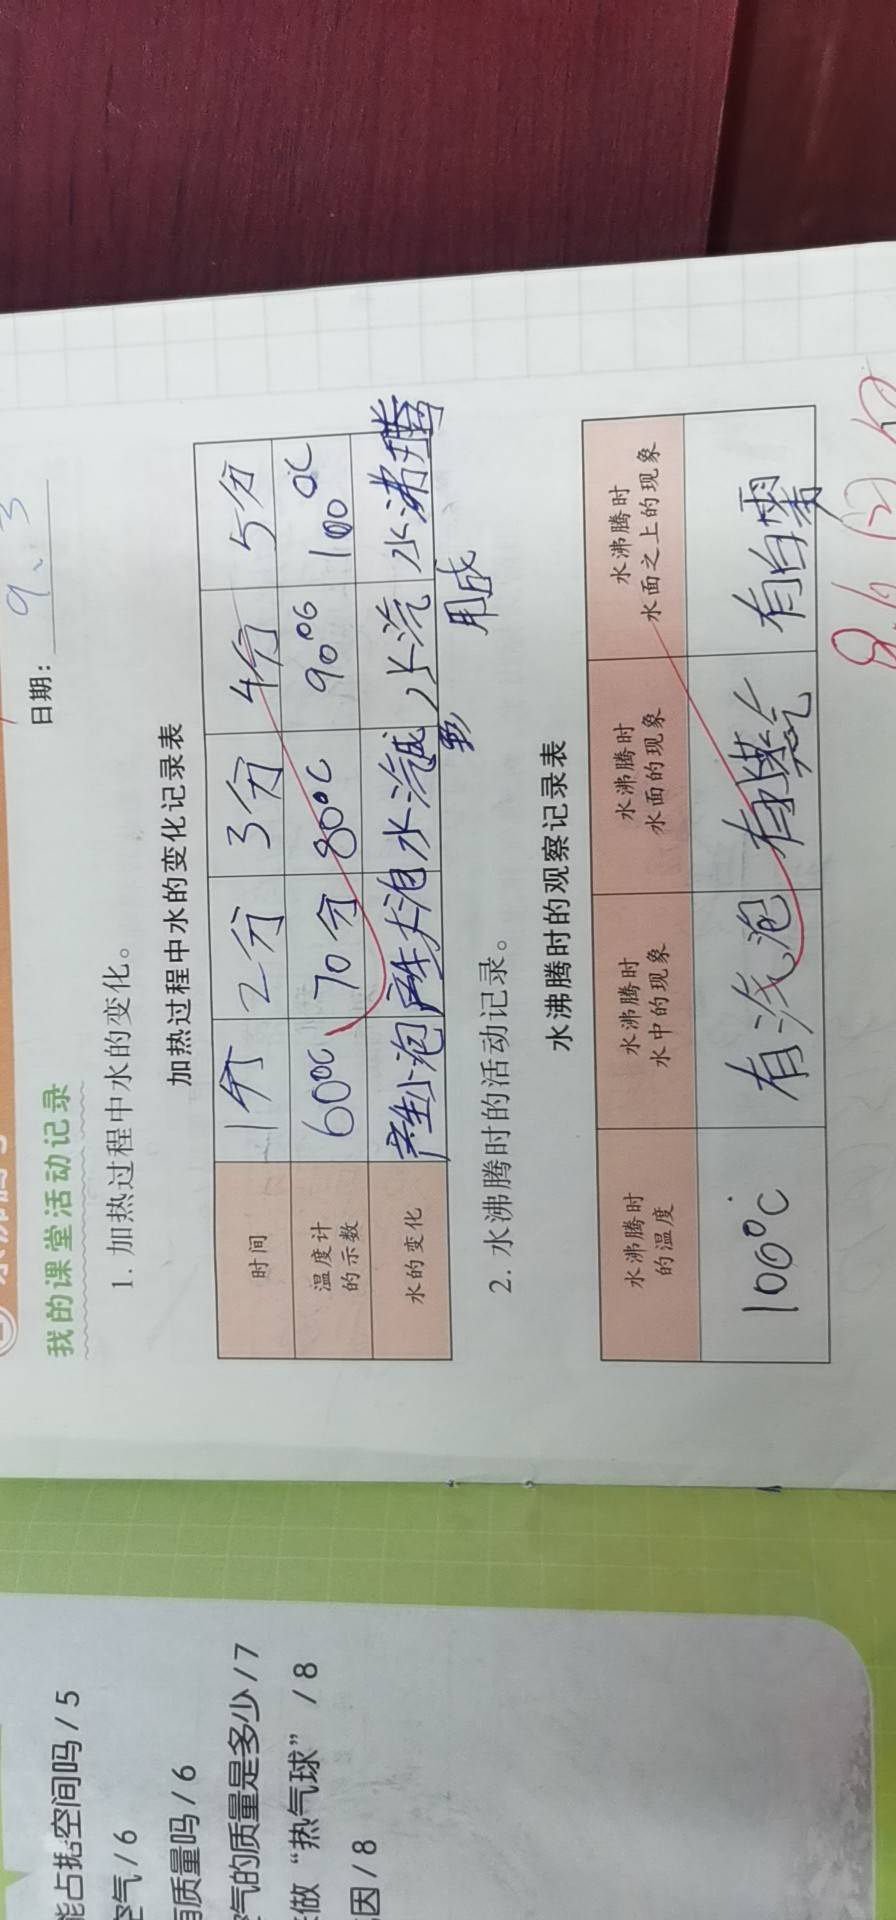 日期：9、3
我的课堂活动记录
1. 加热过程中水的变化。
加热过程中水的变化记录表
时间 1分 2分 3分 4分 5分
温度计的示数 60°C 70分 80°C 90°C 100°C
水的变化 产生小泡 产生大泡 水汽减 水汽形成 水沸腾
2. 水沸腾时的活动记录。
水沸腾时的观察记录表
水沸腾时的温度 水沸腾时水中的现象 水沸腾时水面的现象 水沸腾时水面之上的现象
100°C 有汽泡 有水蒸气 有白雾
能占据空间吗 / 5
空气 / 6
有质量吗 / 6
气的质量是多少 / 7
做“热气球” / 8
因 / 8